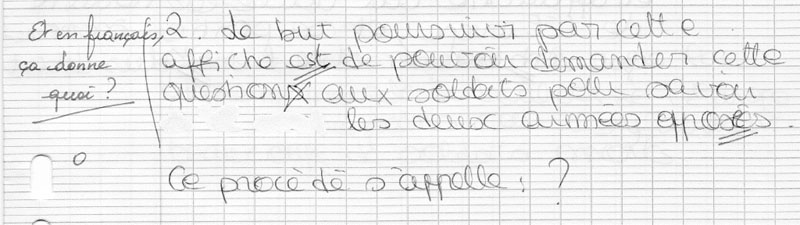 Et en français,
ça donne
quoi ?
2. Le but poursuivi par cette
affiche est de pouvoir demander cette
question aux soldats pour savoir
les deux armées opposés.
Ce procédé s'appelle : ?